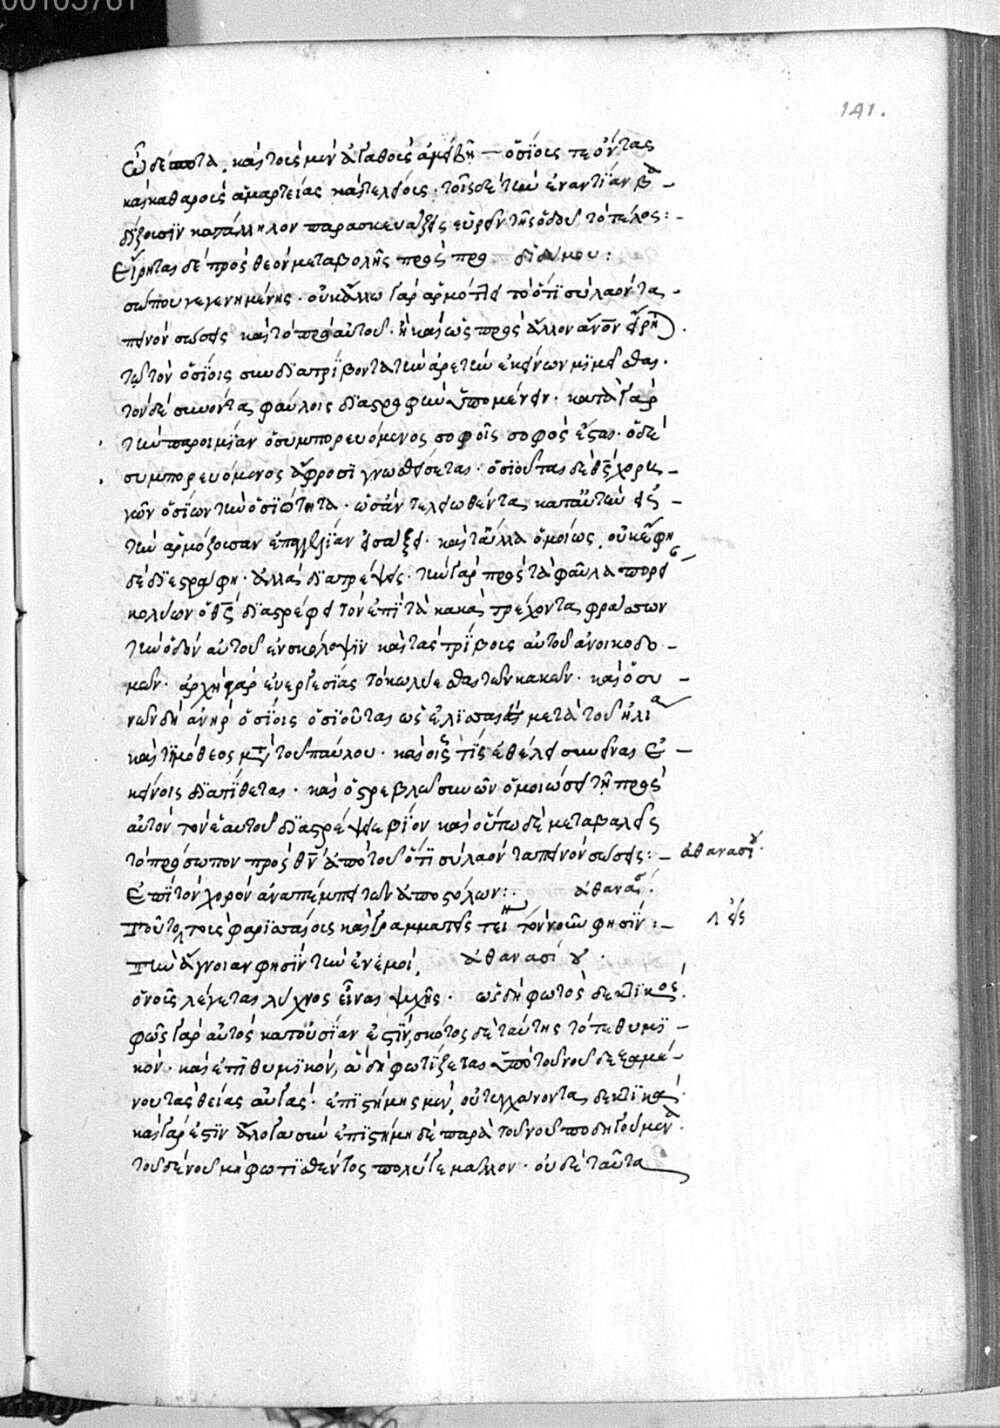 00105761
141.
καὶ τοῖς μὲν ἀγαθοῖς ἀμείβῃ — ὁσίοις τε ὄντας
καὶ καθαροῖς ἁμαρτίας καὶ τελείοις· τοῖς δὲ τὴν ἐναντίαν
κατάλληλον παρασκευάζεις εὑρεῖν τῆς ὁδοῦ τὸ τέλος:-
Εἴρηται δὲ πρὸς θεὸν μεταβολῆς πρὸς προ διδύμου:
σώπου γεγενημένης· οὐκ ἄλλῳ γὰρ ἁρμόττει τὸ ὅτι σὺ λαὸν τα-
πεινὸν σώσεις καὶ τὸ πρὸ αὐτοῦ· ἢ καὶ ὡς πρὸς ἄλλον
τὸν ὁσίοις συνδιατρίβοντα τὴν ἀρετὴν ἐκείνων μιμεῖσθαι·
τὸν δὲ συνόντα φαύλοις διαστροφὴν ὑπομένειν· κατὰ γὰρ
τὴν παροιμίαν ὁ συμπορευόμενος σοφοῖς σοφὸς ἔσται· ὁ δὲ
συμπορευόμενος ἄφροσι γνωσθήσεται· ὁσιοῦται δὲ
ὁσίων τὴν ὁσιότητα· ὡσὰν τελειωθέντας κατ' αὐτὴν
τὴν ἁρμόζουσαν ἐπαγγελίαν εἰσάξει· καὶ τἄλλα ὁμοίως· οὐκ ἔφη
δὲ διεστράφη· ἀλλὰ διατρέψεις· τὴν γὰρ πρὸς τὰ φαῦλα πορεί
κωλύων ὁ θς διαστρέφει τὸν ἐπὶ τὰ κακὰ τρέχοντα φράσσων
τὴν ὁδὸν αὐτοῦ ἐν σκόλοψιν καὶ τὰς τρίβους αὐτοῦ ἀνοικοδο-
μῶν· ἀρχὴ γὰρ εὐεργεσίας τὸ κωλύεσθαι τῶν κακῶν· καὶ ὁ συ-
νὼν δὴ ἀνὴρ ὁσίοις ὁσιοῦται ὡς ἐλισσαιὲ μετὰ τοῦ ἠλι
καὶ τιμόθεος μετὰ τοῦ παύλου· καὶ οἷς τις ἐθέλει συνεῖναι ἐ-
κείνοις διατίθεται· καὶ ὁ στρεβλῷ συνὼν ὁμοιώσει τῇ πρὸς
αὐτὸν τὸν ἑαυτοῦ διαστρέψει βίον καὶ οὕτω δὲ μεταβαλεῖς
τὸ πρόσωπον πρὸς θν ἀπὸ τοῦ ὅτι σὺ λαὸν ταπεινὸν σώσεις:- ἀθανασίου·
Ἐπὶ τὸν χορὸν ἀναπέμπει τῶν ἀποστόλων: ἀθανασ:
Τοῦτο τοῖς φαρισαίοις καὶ γραμματεῖς φησίν:-
Τὴν ἄγνοιαν φησὶν τὴν ἐν ἐμοί, ἀθανασίου·
ὁ νοῦς λέγεται λύχνος εἶναι ψυχῆς· ὡς δὴ φωτὸς δεκτικὸς·
φῶς γὰρ αὐτὸς κατ' οὐσίαν ἐστὶν, σκότος δὲ ταύτης τὸ τε θυμι-
κὸν· καὶ ἐπιθυμικόν, ἃ δὴ φωτίζεται ὑπὸ τοῦ νοῦ δεξαμέ-
νου τὰς θείας αὐγάς· ἐπιστήμης μὲν, οὐ τυγχάνοντα δεκτικὰ·
καὶ γάρ ἐστιν ἄλογα σὺν ἐπιστήμῃ δὲ παρὰ τοῦ νοῦ ποδηγούμενα·
τοῦ δὲ νοῦ μὴ φωτισθέντος πολύ γε μᾶλλον· οὐδὲ ταῦτα